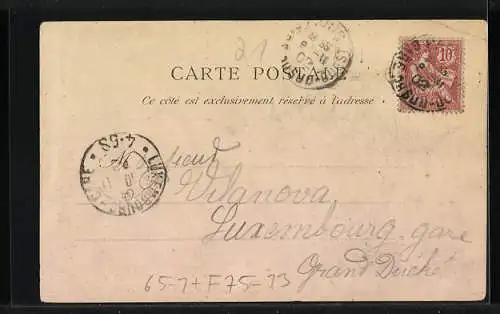 21
CARTE POSTALE
Ce côté est exclusivement réservé à l'adresse
10
LUXEMBOURG-GARE
4-5S
Vilanova
Luxembourg-gare
Grand Duché
65-7+F75-13